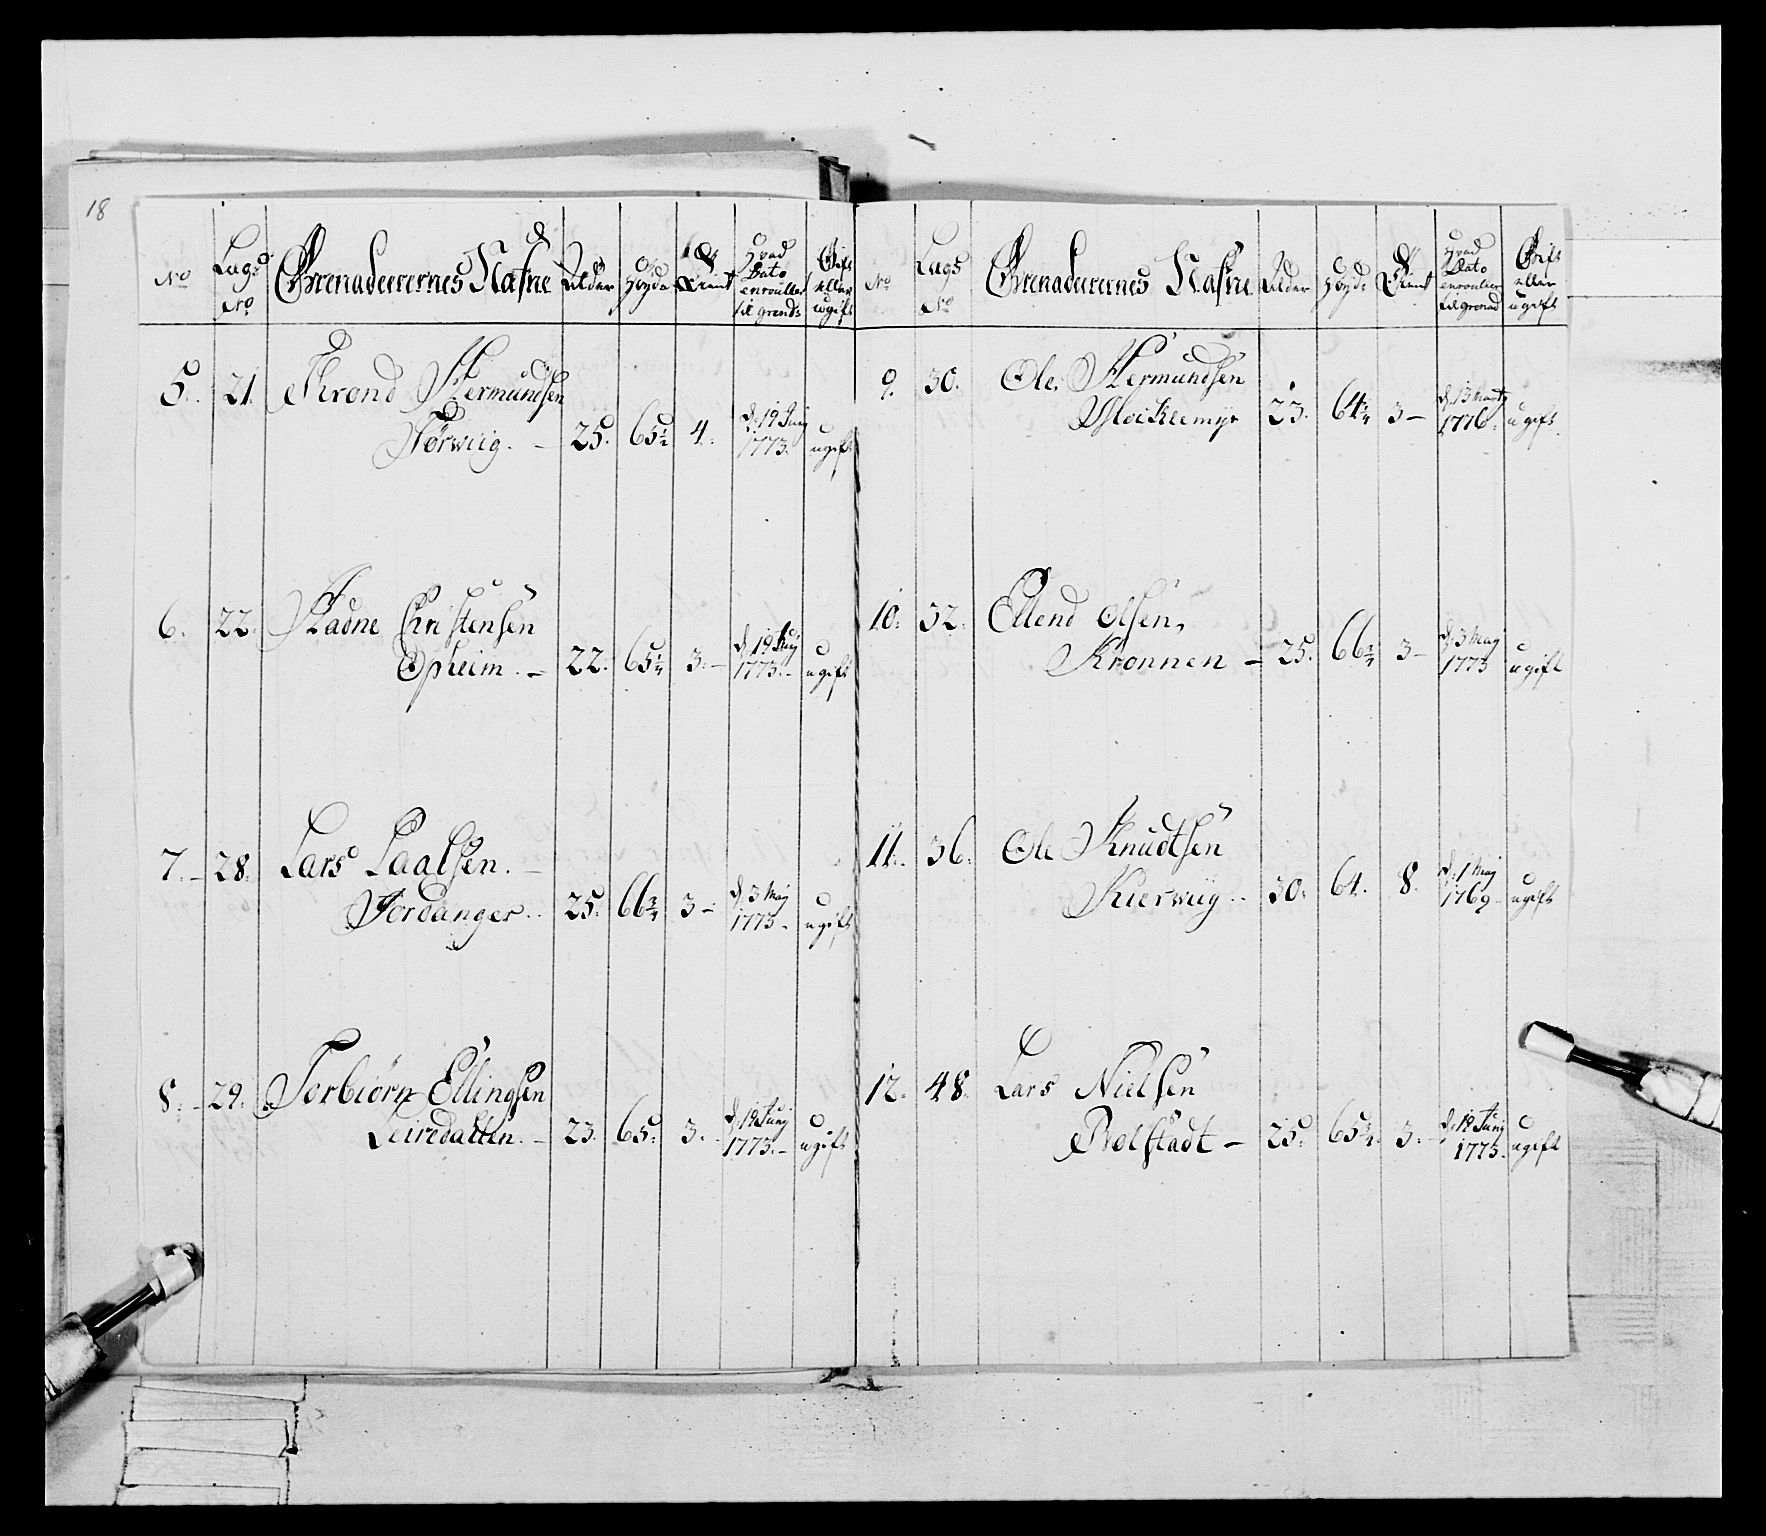 18
No Lags No Grenadeerernes Nafne Alder Høyde Tient Hvad Dato enroullert til grends Gift eller ugift
5. 21. Trond Hermundsen
Nørwiig. – 25. 65½ 4. d. 19 Junj 1773. ugift
6. 22. Hadne Christensen
Opheim. – 22. 65¼ 3. – d. 19 Junj 1773. – ugift
7. – 28. Lars Laalsen. –
Jordanger. . 25. 66¾ 3 – d. 3 Maj 1773. ugift
8. – 29. Torbiørn Ellingsen
Leiredallen. – 23. 65. 3. d. 19 Junj 1773. – ugift
No Lags No Grenadeerernes Nafne Alder Høyde Tient Hvad Dato enroullert til grenad Gift eller ugift
9. 30. Ole Hermundsen
Mocklemyr 23. 64¼ 3 – d. 13 Martj 1776. ugift.
10. 32. Ellend Olsen,
Kronnen – 25. 66¾ 3 – d. 3 Maj 1773 ugift
11. 36. Ole Knudtsen
Kierwiig. . 30. 64. 8. d. 1 Maj 1769. ugift
12. 48. Lars Nielsen
Rolstadt – 25. 65¼. 3. – d. 19 Junj 1773. ugift